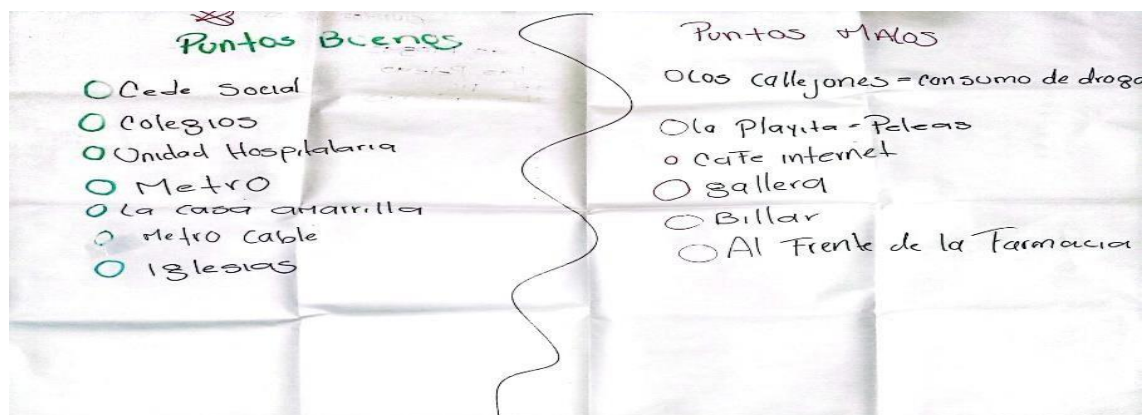 Puntos Buenos
Cede Social
Colegios
Unidad Hospitalaria
Metro
La casa amarrilla
Metro Cable
Iglesias
Puntos MAlos
Los callejones = consumo de droga
la Playita - Peleas
Cafe internet
gallera
Billar
Al Frente de la Farmacia